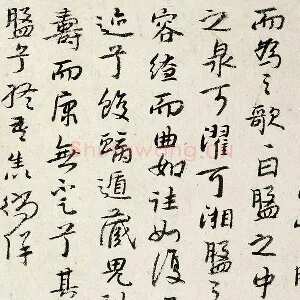 而為之歌曰盤之中
之泉可濯可湘盤之
容繚而曲如往如復
迹兮蛟螭遁藏鬼
壽而康無不足兮其
盤兮終吾生以徜徉